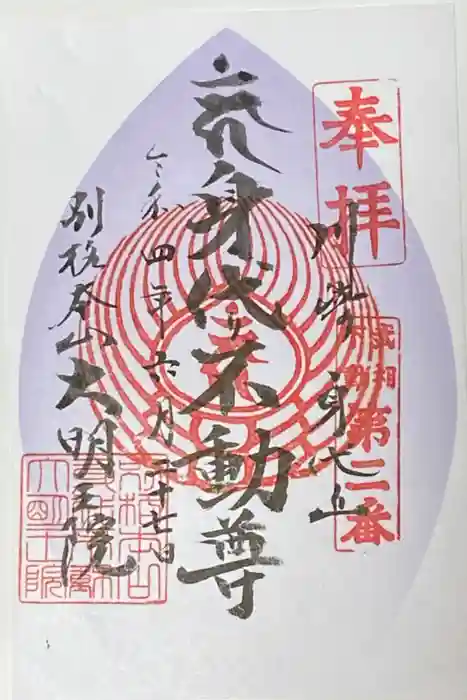 奉拝
川崎 身代丘
武相
不動
第二番
身代り不動尊
令和四年六月二十七日
別格本山 大明王院